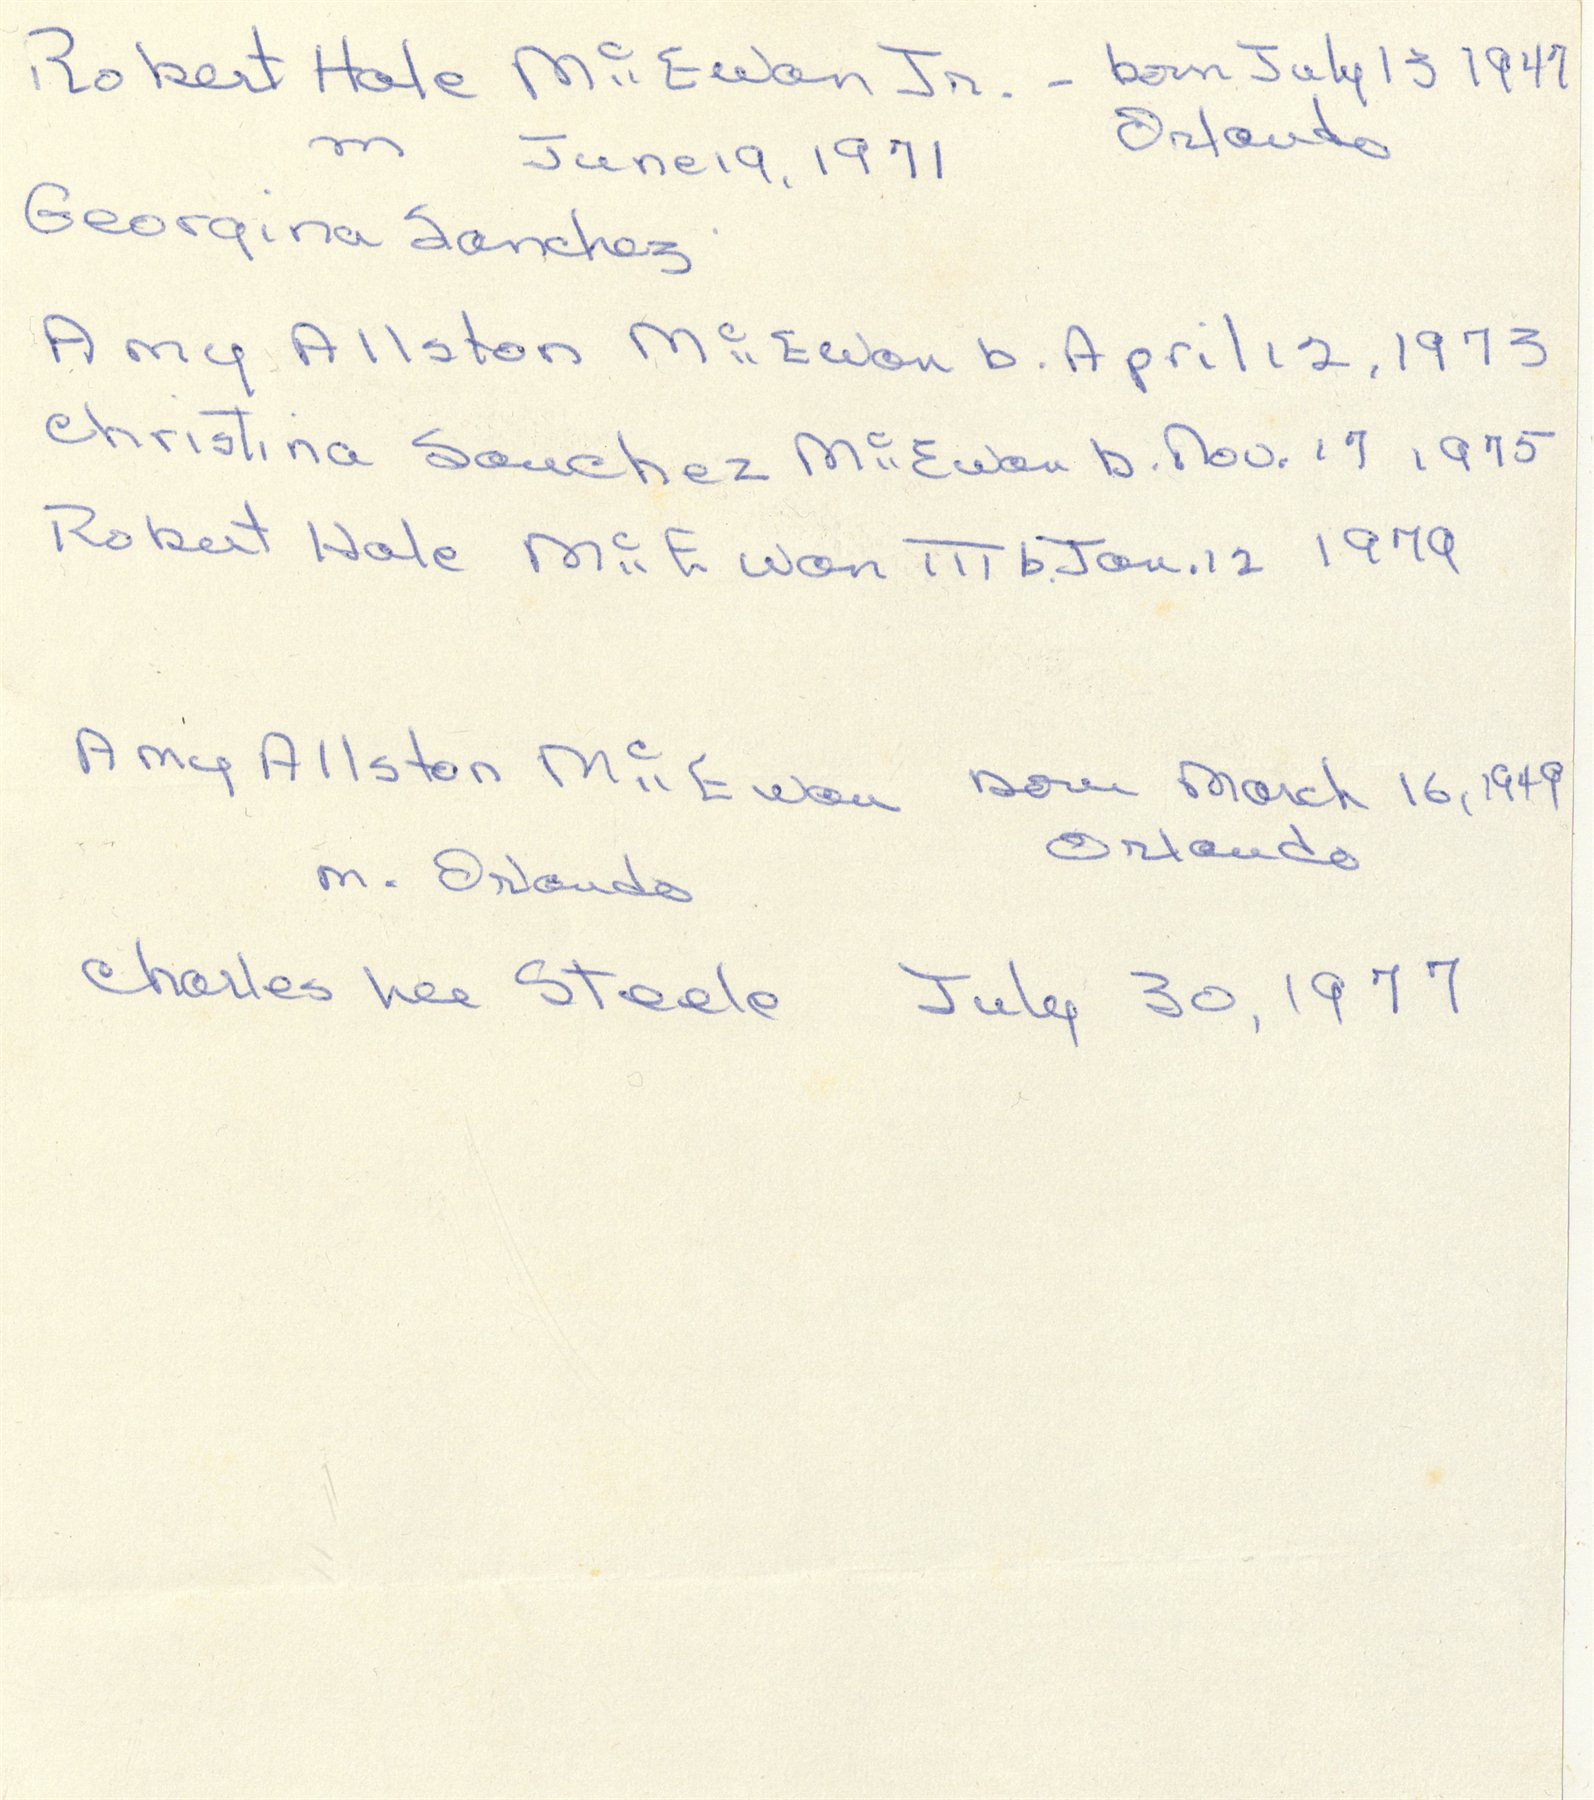 Robert Hale McEwan Jr. - born July 13 1947
m June 19, 1971 Orlando
Georgina Sanchez
Amy Allston McEwan b. April 12, 1973
Christina Sanchez McEwan b. Nov. 17 1975
Robert Hale McEwan III b. Jan. 12 1979
Amy Allston McEwan born March 16, 1949
Orlando
m. Orlando
Charles Lee Steele July 30, 1977